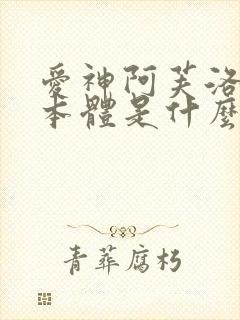 愛神阿芙洛
本體是什麼
青葬腐朽